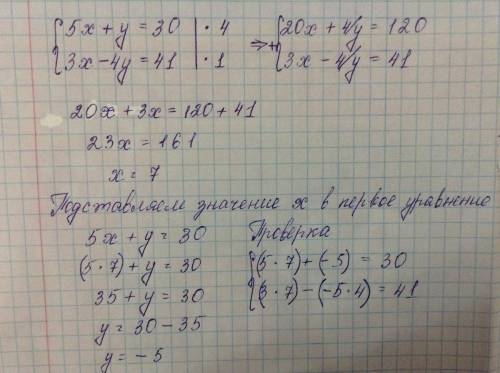 {5x + y = 30 | · 4 ⇒ + {20x + 4y = 120
{3x - 4y = 41 | · 1 {3x - 4y = 41
20x + 3x = 120 + 41
23x = 161
x = 7
Подставляем значение x в первое уравнение
5x + y = 30
(5·7) + y = 30
35 + y = 30
y = 30 - 35
y = - 5
Проверка
{(5·7) + (-5) = 30
{(3·7) - (-5·4) = 41